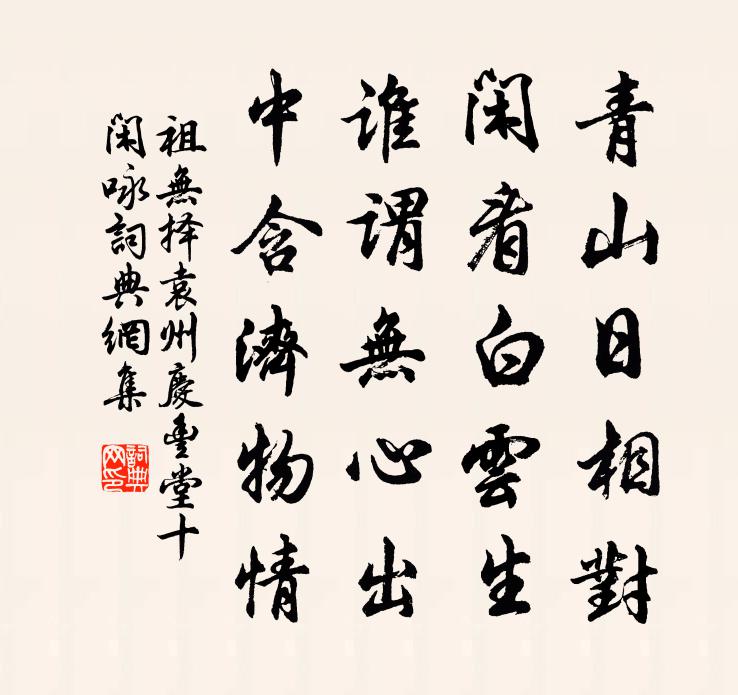 青山日相對
閑看白雲生
誰謂無心出
中含濟物情
祖無择袁州慶豐堂十
閑咏詞典網集
詞典
网印